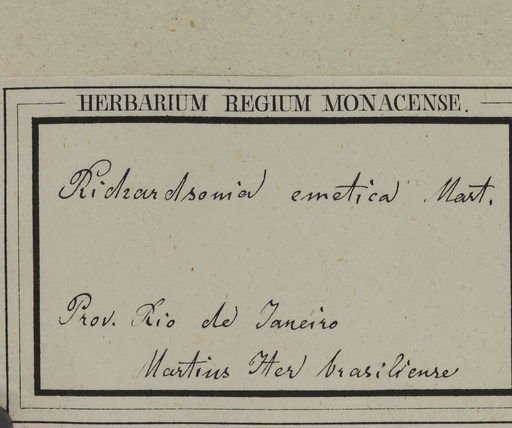 HERBARIUM REGIUM MONACENSE.
Richardsonia emetica Mart.
Prov. Rio de Janeiro
Martius Iter brasiliense